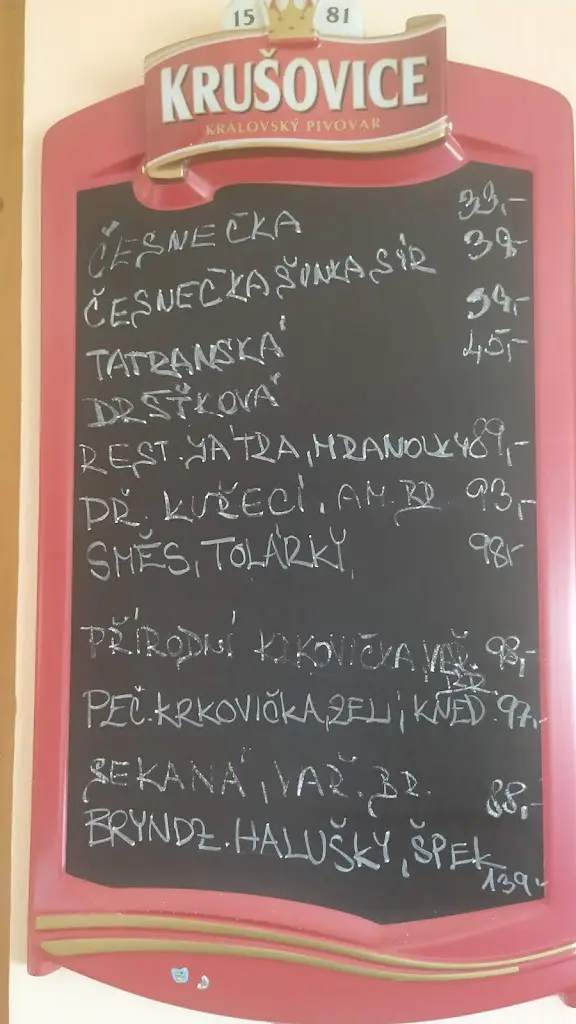 15 81
KRUŠOVICE
KRÁLOVSKÝ PIVOVAR
ČESNEČKA 33,-
ČESNEČKA ŠUNKA, SÝR 39,-
TATRANSKÁ 39,-
DRŠŤKOVÁ 45,-
REST. JÁTRA, HRANOLKY 89,-
DŘ. KUŘECÍ, AM. BR. 93,-
SMĚS, TOLÁRKY, 98,-
PŘÍRODNÍ KRKOVIČKA, VAŘ. BR. 98,-
PEČ. KRKOVIČKA, ZELÍ, KNED. 97,-
SEKANÁ, VAŘ. BR. 88,-
BRYNDZ. HALUŠKY, ŠPEK 139,-